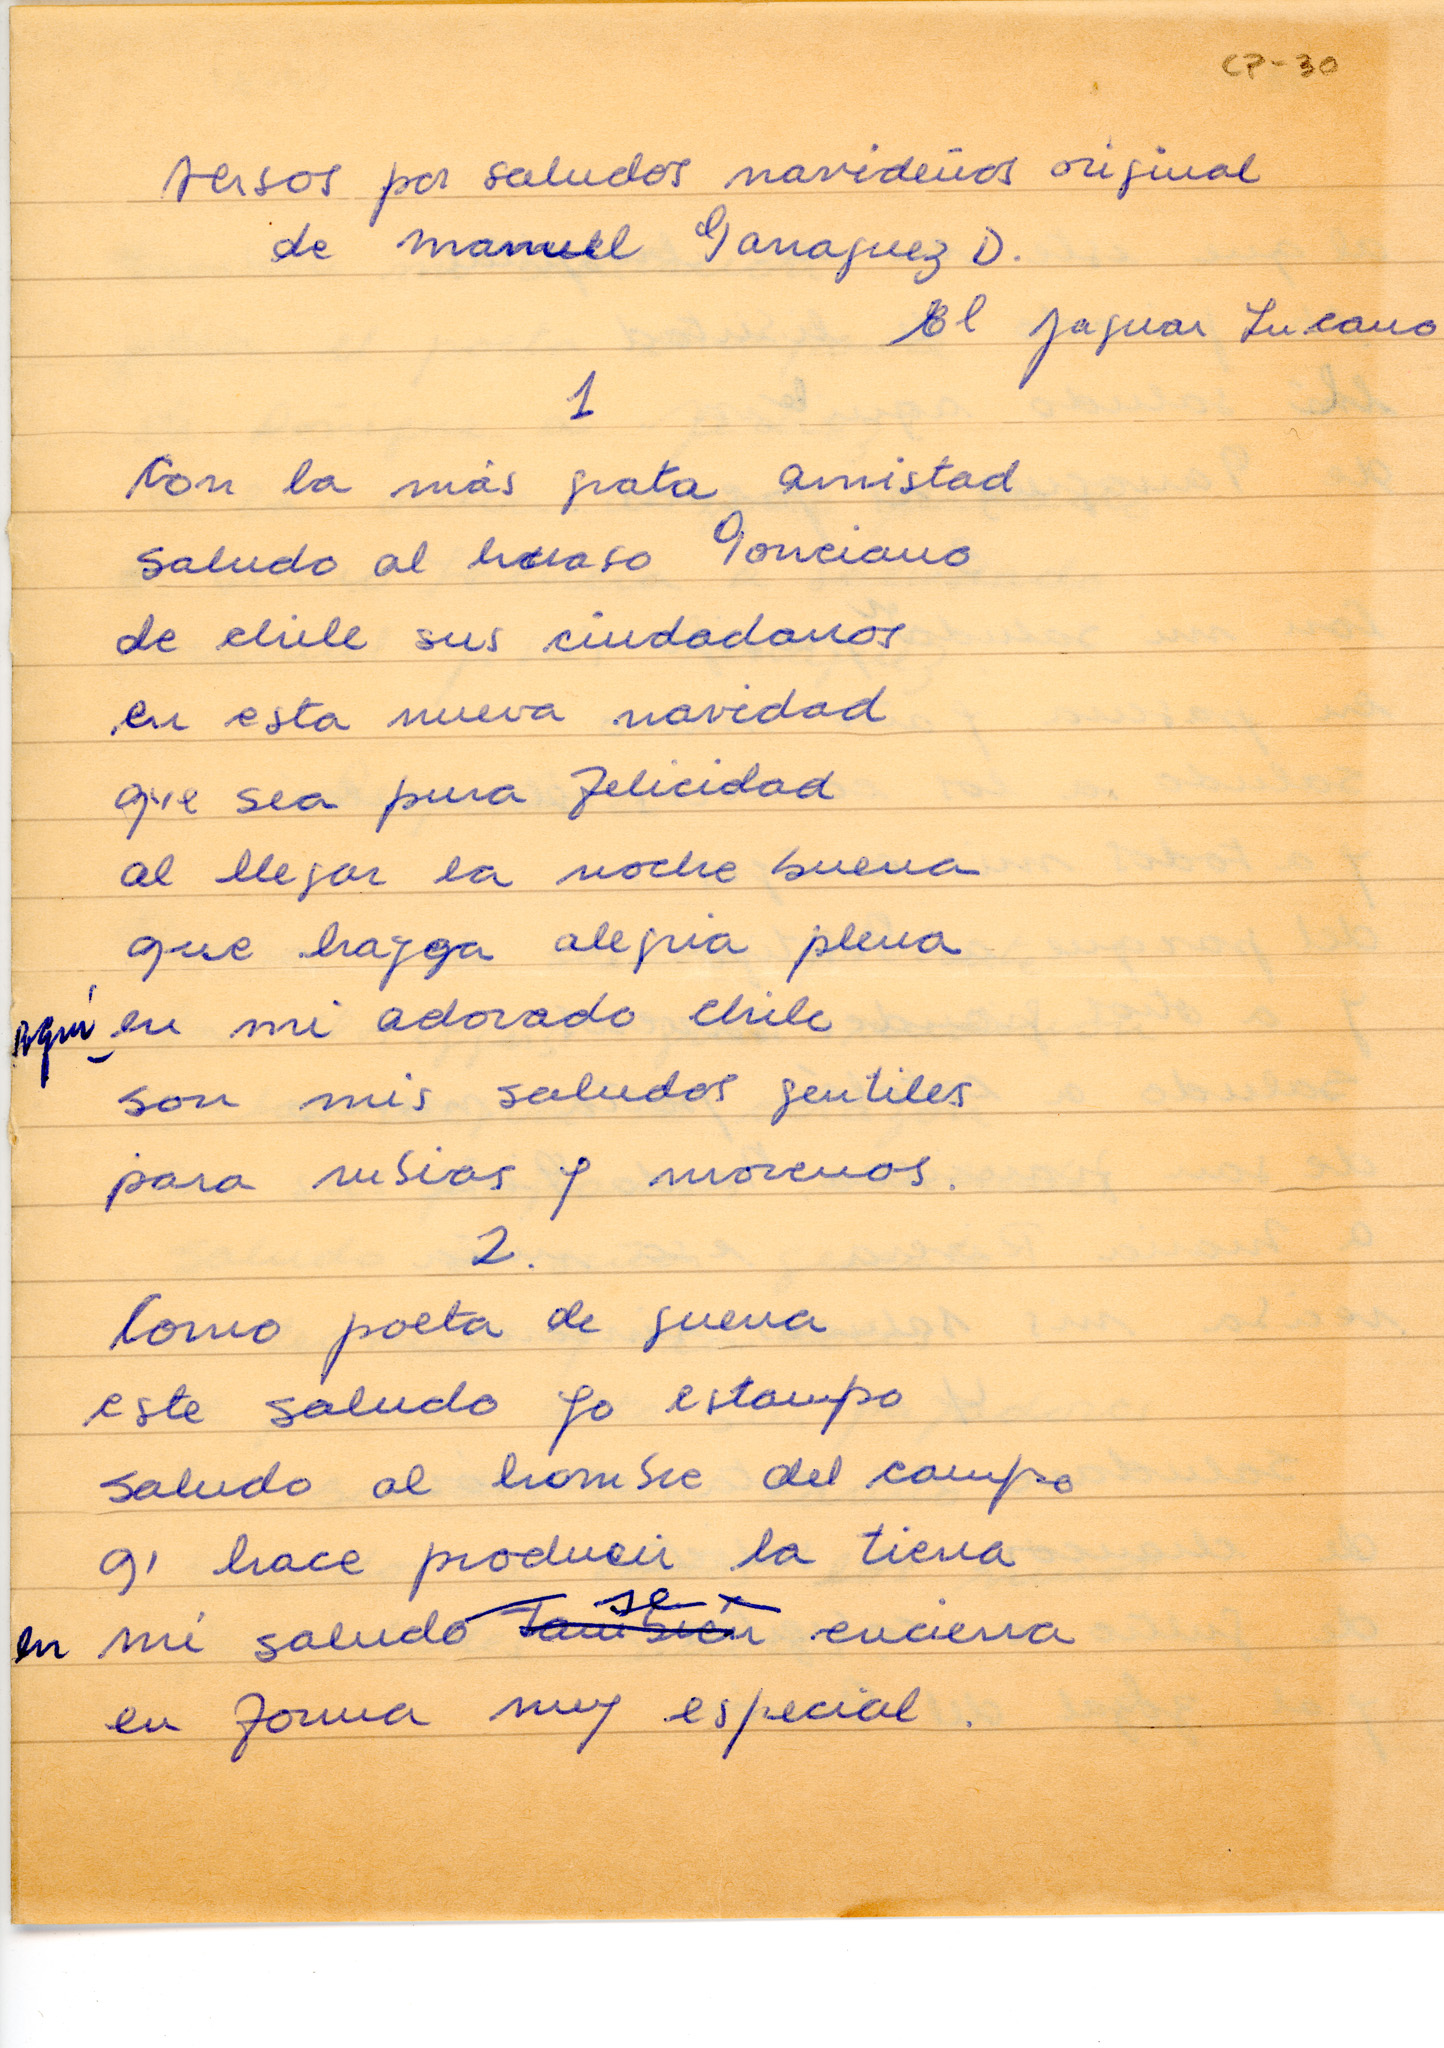 CP-30
versos por saludos navideños original
de manuel Garraguez D.
El jaguar Lucano
1
Con la más grata amistad
saludo al huaso Ponciano
de chile sus ciudadanos
en esta nueva navidad
que sea pura felicidad
al llegar la noche buena
que haygga alegria plena
Aquí en mi adorado chile
son mis saludos gentiles
para rubias y morenos.
2.
Como poeta de guerra
este saludo yo estampo
saludo al hombre del campo
q' hace producir la tierra
se
en mi saludo también encierra
en forma muy especial.